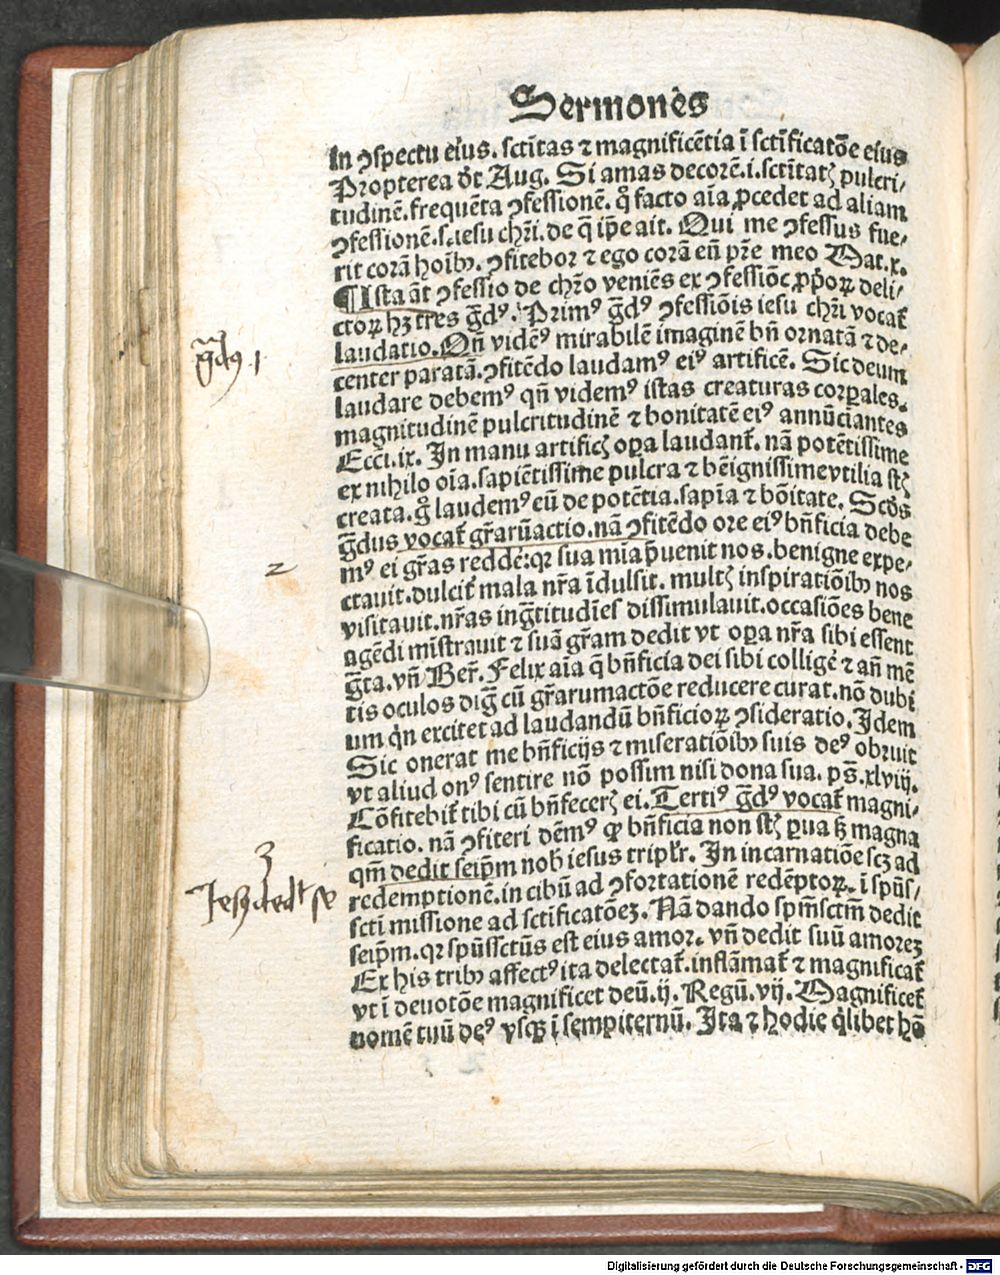 Sermones
In ꝯspectu eius. sctitas ⁊ magnificētia ī sctificatōe eius
Propterea dt Aug. Si amas decorē.i.sctitatꝫ pulcri/
tudinē.frequēta ꝯfessionē. q̊ facto aīa ꝓcedet ad aliam
ꝯfessionē.s.iesu chri. de q̄ ipe ait. Qui me ꝯfessus fue/
rit corā hoībꝰ. ꝯfitebor ⁊ ego corā eū pr̄e meo Mat.x.
¶ Ista āt ꝯfessio de chro veniēs ex ꝯfessiōe ꝓpōꝝ deli/
ctoꝝ hꝫ tres g̅dꝰ. Primꝰ g̅dꝰ ꝯfessiōis iesu chri vocat̄
laudatio. Qn̄ vidēꝰ mirabilē imaginē bn̄ ornatā ⁊ de/
center paratā.ꝯfitēdo laudamꝰ eiꝰ artificē. Sic deum
laudare debemꝰ qn̄ videmꝰ istas creaturas corꝑales.
magnitudinē pulcritudinē ⁊ bonitatē eiꝰ annūciantes
Ecci.ix. In manu artificꝫ oꝑa laudant̄. nā potētissime
ex nihilo oīa.sapiētissime pulcra ⁊ bēignissime vtilia st̄ꝫ
creata. g̊ laudemꝰ eū de potētia.sapīa ⁊ bōitate. Scd̄s
g̅dus vocat̄ gr̄arū actio. nā ꝯfitēdo ore eiꝰ bn̄ficia debe
mꝰ ei gr̄as reddē: qꝛ sua mīa p̄uenit nos. benigne expe/
ctauit. dulcit̄ mala nr̄a īdulsit. multꝫ inspiratiōibꝰ nos
visitauit. nr̄as ing̅titudīes dissimulauit. occasiōes bene
agēdi mīstrauit ⁊ suā gr̄am dedit vt oꝑa nr̄a sibi essent
g̅ta. vn̄ Ber̄. Felix aīa q̄ bn̄ficia dei sibi colligē ⁊ an̄ mē
tis oculos dig̅ cū gr̄arum actōe reducere curat. nō dubi
um q̇n excitet ad laudandū bn̄ficioꝝ ꝯsideratio. Idem
Sic onerat me bn̄ficijs ⁊ miseratiōibꝰ suis deꝰ obruit
vt aliud onꝰ sentire nō possim nisi dona sua. ps̄. xlviij.
Cōfitebit̄ tibi cū bn̄fecerꝫ ei. Tertiꝰ g̅dꝰ vocat̄ magni/
ficatio. nā ꝯfiteri dēmꝰ ꝙ bn̄ficia non st̄ꝫ ꝑua sꝫ magna
qm̄ dedit seipm̄ nob̄ iesus triplr̄. In incarnatiōe scꝫ ad
redemptionē. in cibū ad ꝯfortationē redēptoꝝ. ī spūs/
scti missione ad sctificatōeꝫ. Nā dando spm̄sctm̄ dedit
seipm̄. qꝛ spūssctūs est eius amor. vn̄ dedit suū amoreꝫ
Ex his tribꝰ affectꝰ ita delectat̄. inflāmat̄ ⁊ magnificat̄
vt ī deuotōe magnificet deū. ij. Regū. vij. Magnificet̄
nomē tuū deꝰ vsqꝫ ī sempiternū. Ita ⁊ hodie q̇libet hō
g̅dꝰ 1
2
3
Jesꝰ dedt se
Digitalisierung gefördert durch die Deutsche Forschungsgemeinschaft - DFG